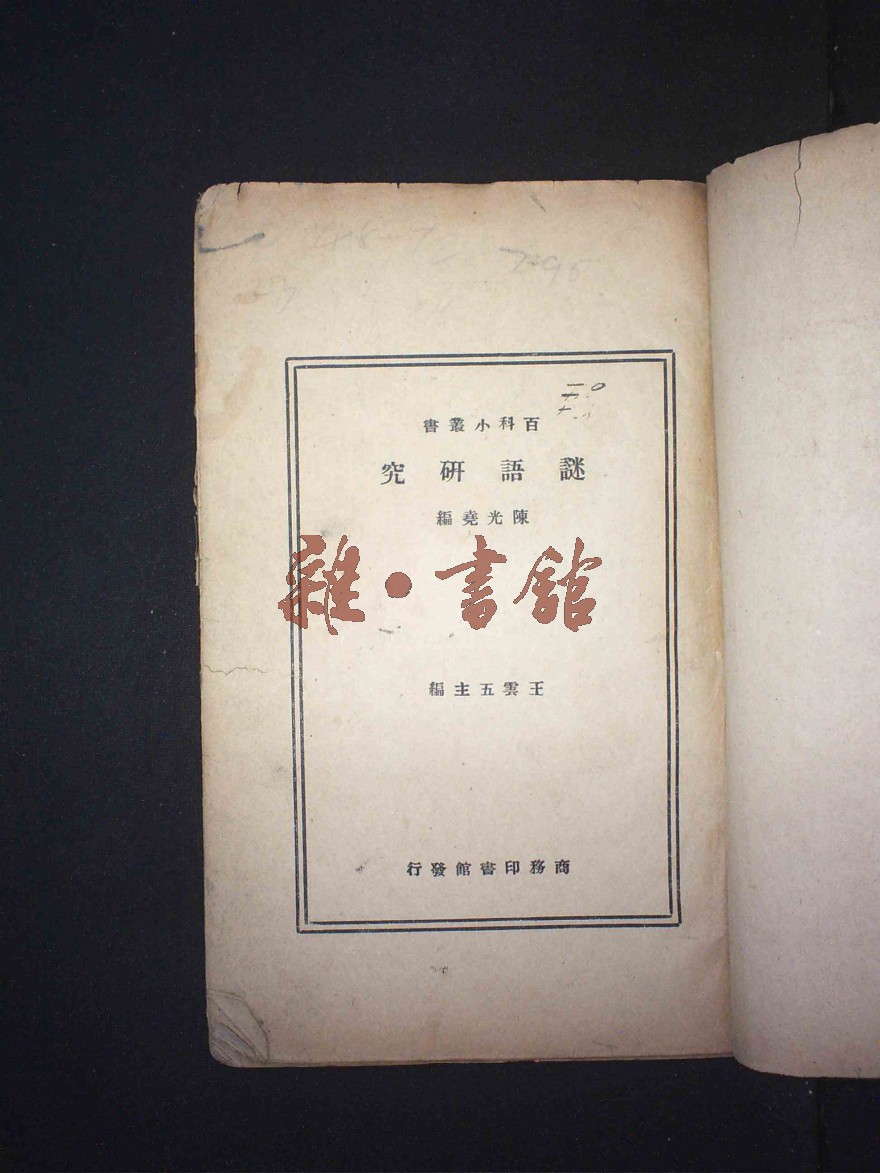 百科小叢書
謎語研究
陳光堯編
雜·書館
王雲五主編
商務印書館發行